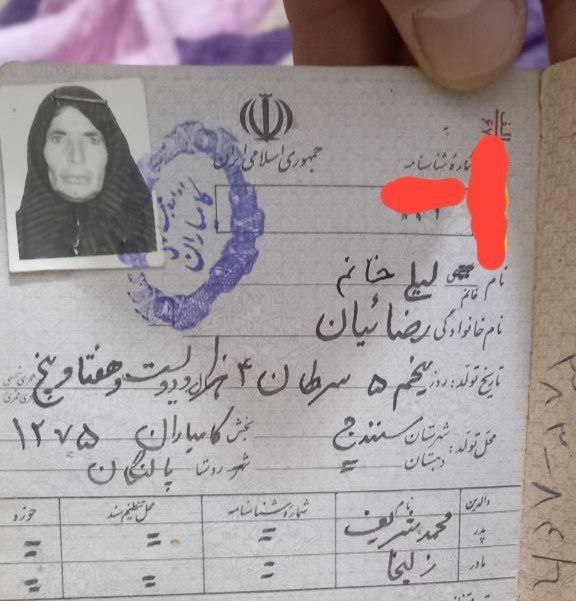 جمهوری اسلامی ایران
شماره شناسنامه
نام لیلی خانم
خانم
نام خانوادگی رضائیان
تاریخ تولد: روز پنجم ۵ سرطان ۴ هزار و دویست و هفتاد و پنج
محل تولد: شهرستان سنندج بخش کامیاران ۱۲۷۵
دهستان = شهر روستا پالنگان
والدین نام شماره شناسنامه محل تنظیم سند حوزه
پدر محمد شریف = = =
مادر زلیخا = = =
کامیاران